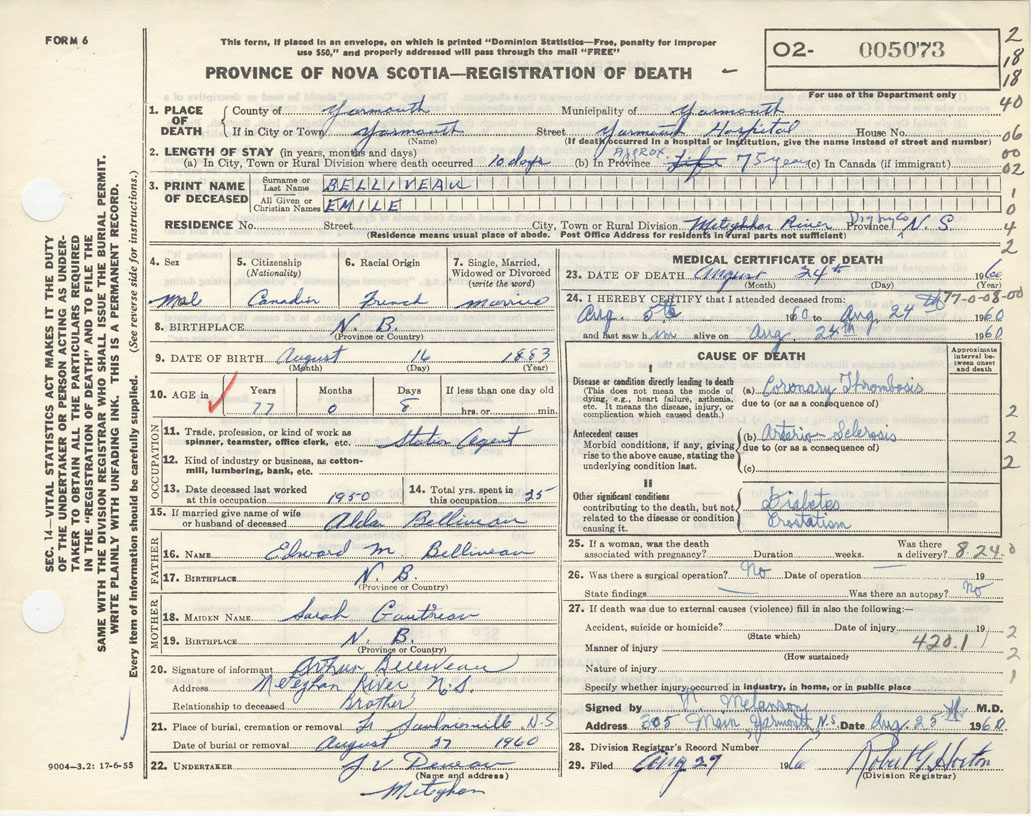 FORM 6
This form, if placed in an envelope, on which is printed "Dominion Statistics—Free, penalty for improper
use $50," and properly addressed will pass through the mail "FREE"
PROVINCE OF NOVA SCOTIA—REGISTRATION OF DEATH
02- 005073
For use of the Department only
2
18
18
40
06
00
02
1
0
4
2
SEC. 14—VITAL STATISTICS ACT MAKES IT THE DUTY
OF THE UNDERTAKER OR PERSON ACTING AS UNDER-
TAKER TO OBTAIN ALL THE PARTICULARS REQUIRED
IN THE "REGISTRATION OF DEATH" AND TO FILE THE
SAME WITH THE DIVISION REGISTRAR WHO SHALL ISSUE THE BURIAL PERMIT.
WRITE PLAINLY WITH UNFADING INK. THIS IS A PERMANENT RECORD.
Every item of information should be carefully supplied. (See reverse side for instructions.)
1. PLACE OF DEATH County of Yarmouth Municipality of Yarmouth
If in City or Town Yarmouth Street Yarmouth Hospital House No.
(Name) (If death occurred in a hospital or institution, give the name instead of street and number)
2. LENGTH OF STAY (in years, months and days)
(a) In City, Town or Rural Division where death occurred 10 days (b) In Province Approx. Life 75 years (c) In Canada (if immigrant)
3. PRINT NAME OF DECEASED Surname or Last Name BELLIVEAU
All Given or Christian Names EMILE
RESIDENCE No. Street City, Town or Rural Division Meteghan River Digby Co Province N. S.
(Residence means usual place of abode. Post Office Address for residents in rural parts not sufficient)
4. Sex 5. Citizenship (Nationality) 6. Racial Origin 7. Single, Married, Widowed or Divorced (write the word)
Male Canadian French Married
8. BIRTHPLACE N. B.
(Province or Country)
9. DATE OF BIRTH August 16 1883
(Month) (Day) (Year)
10. AGE in Years Months Days If less than one day old
77 0 8 hrs. or min.
OCCUPATION
11. Trade, profession, or kind of work as spinner, teamster, office clerk, etc. Station Agent
12. Kind of industry or business, as cotton-mill, lumbering, bank, etc.
13. Date deceased last worked at this occupation 1950 14. Total yrs. spent in this occupation 35
15. If married give name of wife or husband of deceased Alda Belliveau
FATHER
16. NAME Edward M. Belliveau
17. BIRTHPLACE N. B.
(Province or Country)
MOTHER
18. MAIDEN NAME Sarah Gautreau
19. BIRTHPLACE N. B.
(Province or Country)
20. Signature of informant Arthur Belliveau
Address Meteghan River, N.S.
Relationship to deceased Brother
21. Place of burial, cremation or removal N.S
Date of burial or removal August 27 1960
22. UNDERTAKER
(Name and address)
Meteghan
9004—3.2: 17-6-55
MEDICAL CERTIFICATE OF DEATH
23. DATE OF DEATH August 24th 1960
(Month) (Day) (Year)
77-0-08-00
24. I HEREBY CERTIFY that I attended deceased from:
Aug. 5th 1960 to Aug. 24th 1960
and last saw him alive on Aug. 24th 1960
CAUSE OF DEATH
Approximate interval between onset and death
I
Disease or condition directly leading to death
(This does not mean the mode of dying, e.g., heart failure, asthenia, etc. It means the disease, injury, or complication which caused death.)
(a) Coronary Thrombosis
due to (or as a consequence of)
Antecedent causes
Morbid conditions, if any, giving rise to the above cause, stating the underlying condition last.
(b) Arterio-Sclerosis
due to (or as a consequence of)
(c)
2
2
2
II
Other significant conditions
contributing to the death, but not related to the disease or condition causing it.
Diabetes
Prostatism
25. If a woman, was the death associated with pregnancy? Duration weeks. Was there a delivery? 8 24.0
26. Was there a surgical operation? No Date of operation — 19
State findings — Was there an autopsy? No
27. If death was due to external causes (violence) fill in also the following:—
Accident, suicide or homicide? Date of injury 19
(State which)
Manner of injury 420.1
(How sustained)
Nature of injury
Specify whether injury occurred in industry, in home, or in public place
2
2
1
Signed by Melanson M.D.
Address 305 Main, Yarmouth, N.S. Date Aug. 25th 1960
28. Division Registrar's Record Number
29. Filed Aug 27 1960 Robert G. Horton
(Division Registrar)